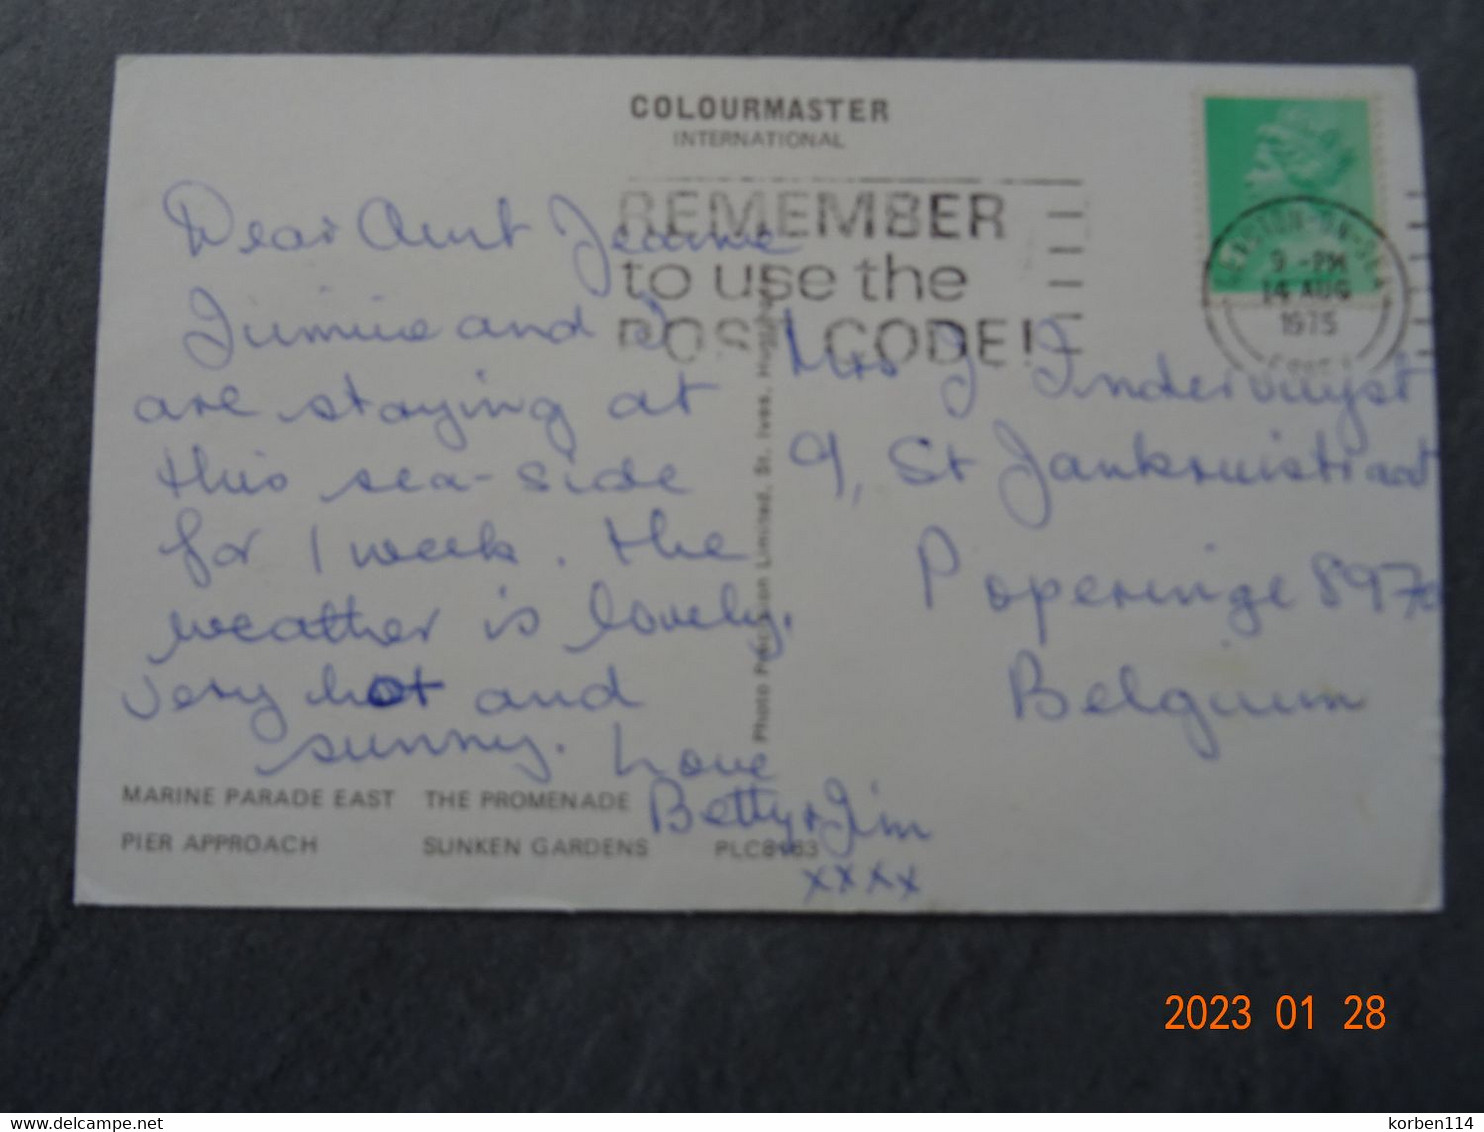 COLOURMASTER
INTERNATIONAL
REMEMBER
to use the
POST CODE!
CLACTON-ON-SEA
9 -PM
14 AUG
1975
ESSEX
Dear Aunt Jeanne
Jimmie and I
are staying at
this sea-side
for 1 week. the
weather is lovely.
very hot and
sunny. Love
Betty & Jim
xxxx
Mrs J Indervuyst
9, St Jankruistraat
Poperinge 8970
Belgium
Photo Precision Limited, St. Ives,
MARINE PARADE EAST THE PROMENADE
PIER APPROACH SUNKEN GARDENS PLC8163
2023 01 28
delcampe.net
korben114